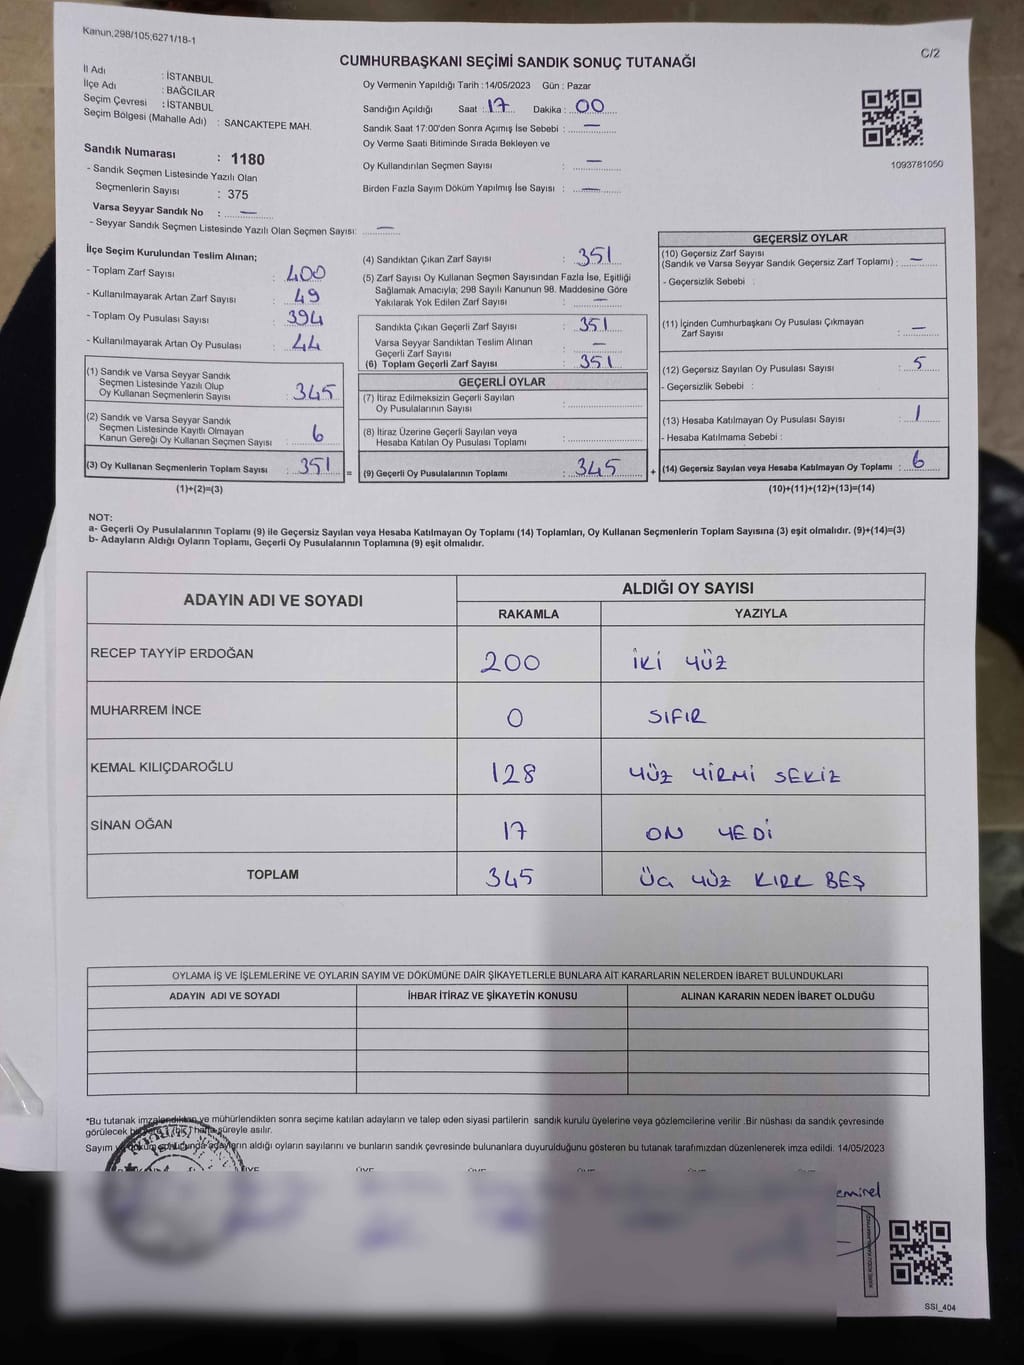 Kanun,298/105,6271/18-1
C/2
CUMHURBAŞKANI SEÇİMİ SANDIK SONUÇ TUTANAĞI
İl Adı : İSTANBUL
İlçe Adı : BAĞCILAR
Seçim Çevresi : İSTANBUL
Seçim Bölgesi (Mahalle Adı) : SANCAKTEPE MAH.
Sandık Numarası : 1180
- Sandık Seçmen Listesinde Yazılı Olan
Seçmenlerin Sayısı : 375
Varsa Seyyar Sandık No : —
- Seyyar Sandık Seçmen Listesinde Yazılı Olan Seçmen Sayısı: —
Oy Vermenin Yapıldığı Tarih : 14/05/2023 Gün : Pazar
Sandığın Açıldığı Saat : 17 Dakika : 00
Sandık Saat 17:00'den Sonra Açımış İse Sebebi : —
Oy Verme Saati Bitiminde Sırada Bekleyen ve
Oy Kullandırılan Seçmen Sayısı : —
Birden Fazla Sayım Döküm Yapılmış İse Sayısı : —
1093781050
İlçe Seçim Kurulundan Teslim Alınan;
- Toplam Zarf Sayısı : 400
- Kullanılmayarak Artan Zarf Sayısı : 49
- Toplam Oy Pusulası Sayısı : 394
- Kullanılmayarak Artan Oy Pusulası : 44
(1) Sandık ve Varsa Seyyar Sandık
Seçmen Listesinde Yazılı Olup
Oy Kullanan Seçmenlerin Sayısı : 345
(2) Sandık ve Varsa Seyyar Sandık
Seçmen Listesinde Kayıtlı Olmayan
Kanun Gereği Oy Kullanan Seçmen Sayısı : 6
(3) Oy Kullanan Seçmenlerin Toplam Sayısı : 351
(1)+(2)=(3)
(4) Sandıktan Çıkan Zarf Sayısı : 351
(5) Zarf Sayısı Oy Kullanan Seçmen Sayısından Fazla İse, Eşitliği
Sağlamak Amacıyla; 298 Sayılı Kanunun 98. Maddesine Göre
Yakılarak Yok Edilen Zarf Sayısı : —
Sandıkta Çıkan Geçerli Zarf Sayısı : 351
Varsa Seyyar Sandıktan Teslim Alınan
Geçerli Zarf Sayısı : —
(6) Toplam Geçerli Zarf Sayısı : 351
GEÇERLİ OYLAR
(7) İtiraz Edilmeksizin Geçerli Sayılan
Oy Pusulalarının Sayısı :
(8) İtiraz Üzerine Geçerli Sayılan veya
Hesaba Katılan Oy Pusulası Toplamı :
= (9) Geçerli Oy Pusulalarının Toplamı : 345 +
GEÇERSİZ OYLAR
(10) Geçersiz Zarf Sayısı
(Sandık ve Varsa Seyyar Sandık Geçersiz Zarf Toplamı) : —
- Geçersizlik Sebebi :
(11) İçinden Cumhurbaşkanı Oy Pusulası Çıkmayan
Zarf Sayısı : —
(12) Geçersiz Sayılan Oy Pusulası Sayısı : 5
- Geçersizlik Sebebi :
(13) Hesaba Katılmayan Oy Pusulası Sayısı : 1
- Hesaba Katılmama Sebebi :
(14) Geçersiz Sayılan veya Hesaba Katılmayan Oy Toplamı : 6
(10)+(11)+(12)+(13)=(14)
NOT:
a- Geçerli Oy Pusulalarının Toplamı (9) ile Geçersiz Sayılan veya Hesaba Katılmayan Oy Toplamı (14) Toplamları, Oy Kullanan Seçmenlerin Toplam Sayısına (3) eşit olmalıdır. (9)+(14)=(3)
b- Adayların Aldığı Oyların Toplamı, Geçerli Oy Pusulalarının Toplamına (9) eşit olmalıdır.
ADAYIN ADI VE SOYADI
ALDIĞI OY SAYISI
RAKAMLA YAZIYLA
RECEP TAYYİP ERDOĞAN 200 İKİ YÜZ
MUHARREM İNCE 0 SIFIR
KEMAL KILIÇDAROĞLU 128 YÜZ YİRMİ SEKİZ
SİNAN OĞAN 17 ON YEDİ
TOPLAM 345 ÜÇ YÜZ KIRK BEŞ
OYLAMA İŞ VE İŞLEMLERİNE VE OYLARIN SAYIM VE DÖKÜMÜNE DAİR ŞİKAYETLERLE BUNLARA AİT KARARLARIN NELERDEN İBARET BULUNDUKLARI
ADAYIN ADI VE SOYADI İHBAR İTİRAZ VE ŞİKAYETİN KONUSU ALINAN KARARIN NEDEN İBARET OLDUĞU
*Bu tutanak imzalandıktan ve mühürlendikten sonra seçime katılan adayların ve talep eden siyasi partilerin sandık kurulu üyelerine veya gözlemcilerine verilir .Bir nüshası da sandık çevresinde
görülecek hafta süreyle asılır.
Sayım adayların aldığı oyların sayılarını ve bunların sandık çevresinde bulunanlara duyurulduğunu gösteren bu tutanak tarafımızdan düzenlenerek imza edildi. 14/05/2023
SSI_404